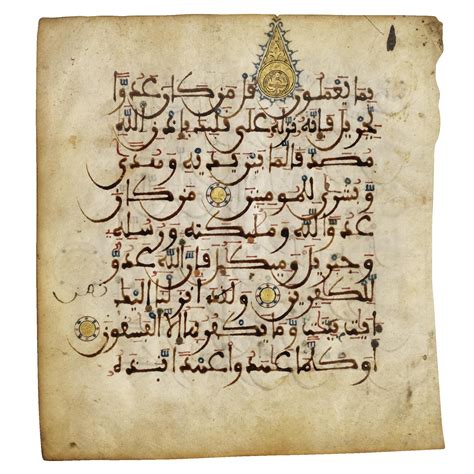 بما يعملون قل من كان عدوا
لجبريل فإنه نزله على قلبك بإذن الله
مصدقا لما بين يديه وهدى
وبشرى للمومنين من كان
عدوا لله وملئكته ورسله
وجبريل وميكل فإن الله عدو
للكفرين ولقد أنزلنا إليك
ءايت بينت وما يكفر بها إلا الفسقون
أوكلما عهدوا عهدا نبذه